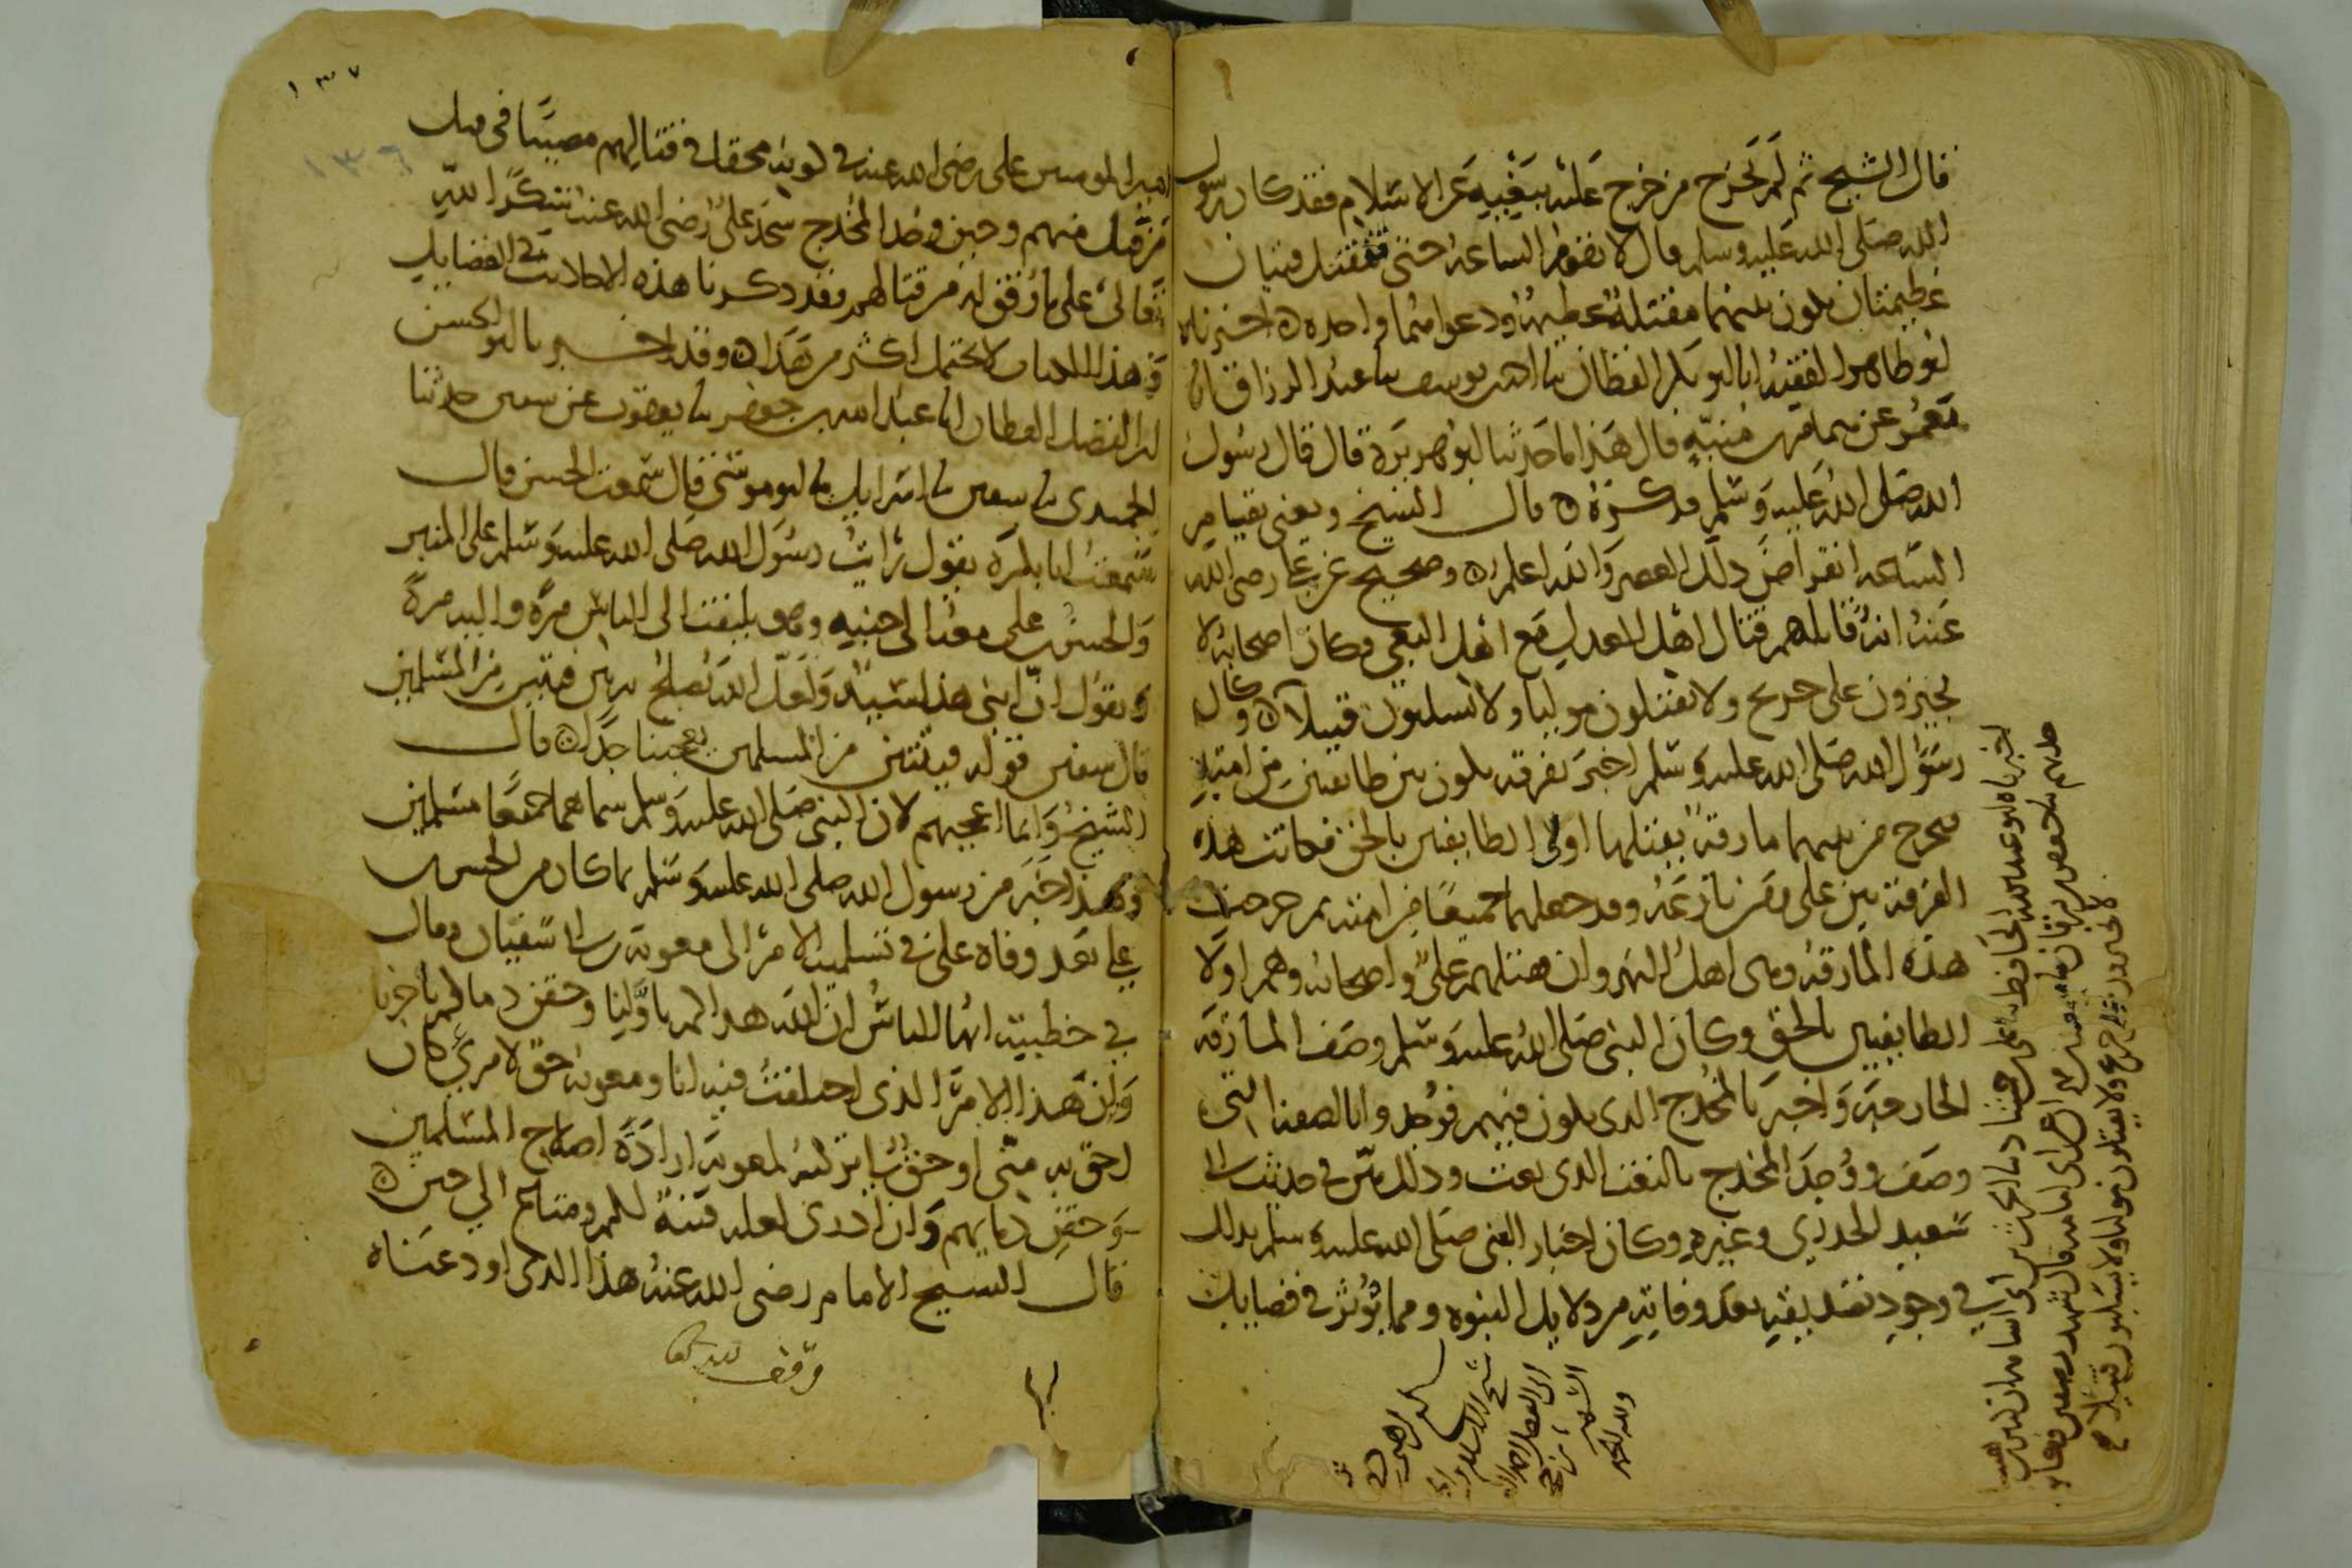 قال الشيخ ثم لم يخرج من خرج عليه ببغيه عن الاسلام فقد كان رسول
الله صلى الله عليه وسلم قال لا تقوم الساعة حتى تقتتل فئتان
عظيمتان يكون بينهما مقتلة عظيمة ودعواهما واحدة ه اخبرناه
ابو طاهر الفقيه انا ابو بكر القطان نا احمد بن يوسف نا عبد الرزاق انا
معمر عن همام بن منبه قال هذا ما حدثنا ابو هريرة قال قال رسول
الله صلى الله عليه وسلم فذكره ه قال الشيخ ويعني بقيام
الساعة انقراض ذلك العصر والله اعلم ه وصحيح عن علي رضي الله
عنه انه قاتلهم قتال اهل العدل مع اهل البغي فكان اصحابه لا
يجيزون على جريح ولا يقتلون موليا ولا يسلبون قتيلا ه وكان
رسول الله صلى الله عليه وسلم اخبر بفرقة يكون بين طائفتين من امته
يخرج من بينهما مارقة يقتلها اولى الطايفتين بالحق فكانت هذه
الفرقة بين علي ومن نازعه وقد جعلهما جميعا من امته ثم خرجت
هذه المارقة وهي اهل النهروان فقتلهم علي واصحابه وهم اولى
الطايفتين بالحق وكان النبي صلى الله عليه وسلم وصف المارقة
الخارجة واخبر بالمخدج الذي يكون فيهم فوجدوا بالصفة التي
وصف ووجد المخدج بالنعت الذي نعت وذلك بين في حديث ابي
سعيد الخدري وغيره وكان اخبار النبي صلى الله عليه وسلم بذلك
في وجود تصديقه بعد وفاته من دلايل النبوة ومما يؤثر في فضايل
اخبرناه ابو عبد الله الحافظ
ولا يقتلون موليا ولا يسلبون قتيلا
١٣٧
١٣٦
امير المومنين علي رضي الله عنه في كونه محقا في قتالهم مصيبا في قتل
من قتل منهم وحين وجد المخدج سجد علي رضي الله عنه شكرا لله
تعالى على ما وفق له من قتالهم فقد ذكرنا هذه الاحاديث في الفضايل
وهذا الكتاب لا يحتمل اكثر من هذا ه وقد اخبرنا ابو الحسين
ابن الفضل القطان انا عبد الله بن جعفر نا يعقوب بن سفين حدثنا
الحميدي نا سفين نا اسرايل نا ابو موسى قال سمعت الحسن قال
سمعت ابا بكرة يقول رايت رسول الله صلى الله عليه وسلم على المنبر
والحسن بن علي معه الى جنبه وهو يلتفت الى الناس مرة واليه مرة
ويقول ان ابني هذا سيد ولعل الله يصلح به بين فئتين من المسلمين
قال سفين قوله فئتين من المسلمين يعجبنا جدا ه قال
الشيخ وانما اعجبهم لان النبي صلى الله عليه وسلم سماهما جميعا مسلمين
وهذا خبر من رسول الله صلى الله عليه وسلم بما كان من الحسن بن
علي بعد وفاة علي في تسليمه الامر الى معوية بن ابي سفيان وقال
في خطبته ايها الناس ان الله هداكم باولنا وحقن دماكم باخرنا
وان هذا الامر الذي اختلفت فيه انا ومعوية حق لامرئ كان
احق به مني او حق لي تركته لمعوية ارادة اصلاح المسلمين
وحقن دمايهم وان ادري لعله فتنة لكم ومتاع الى حين ه
قال الشيخ الامام رضي الله عنه هذا الذي اودعناه
وقف لله تعالى